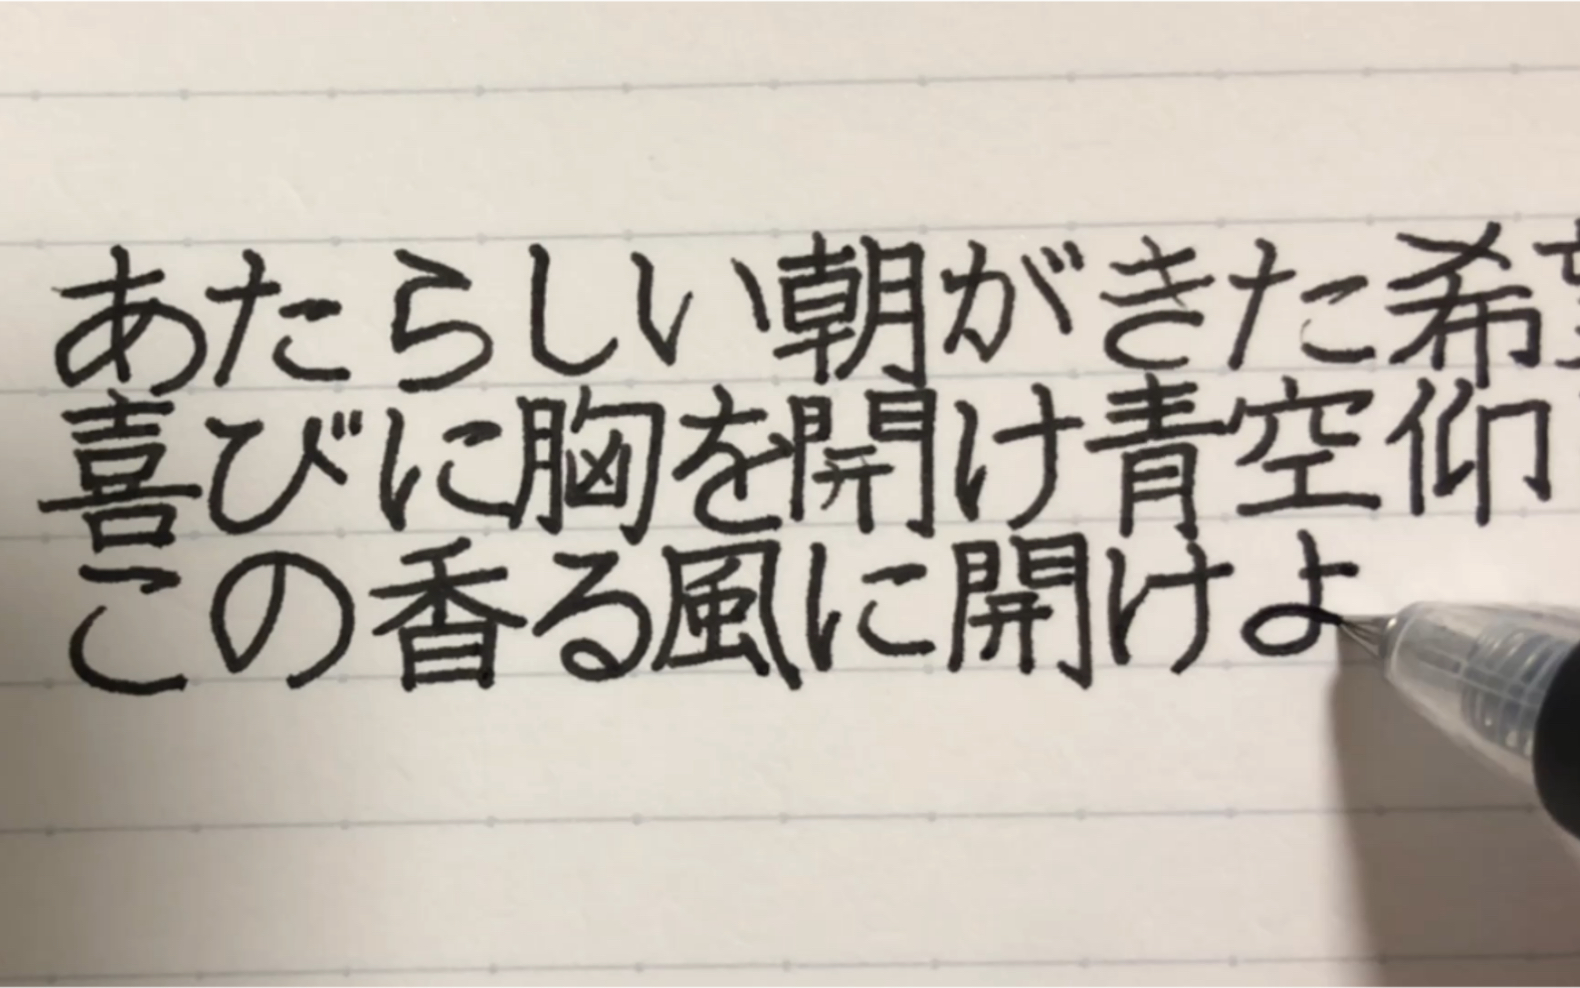 あたらしい朝がきた希
喜びに胸を開け青空仰
この香る風に開けよ